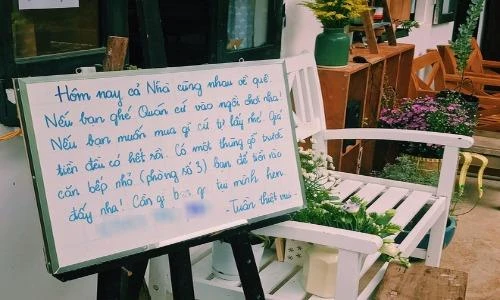 Hôm nay cả Nhà cùng nhau về quê.
Nếu bạn ghé Quán cứ vào ngồi chơi nha!
Nếu bạn muốn mua gì cứ tự lấy nhé! Giá
tiền đều có hết rồi. Có một thùng gỗ trước
căn bếp nhỏ (phòng số 3) bạn để tiền vào
đấy nha! Cần gì gọi tụi mình hen
- Tuần thiệt vui -